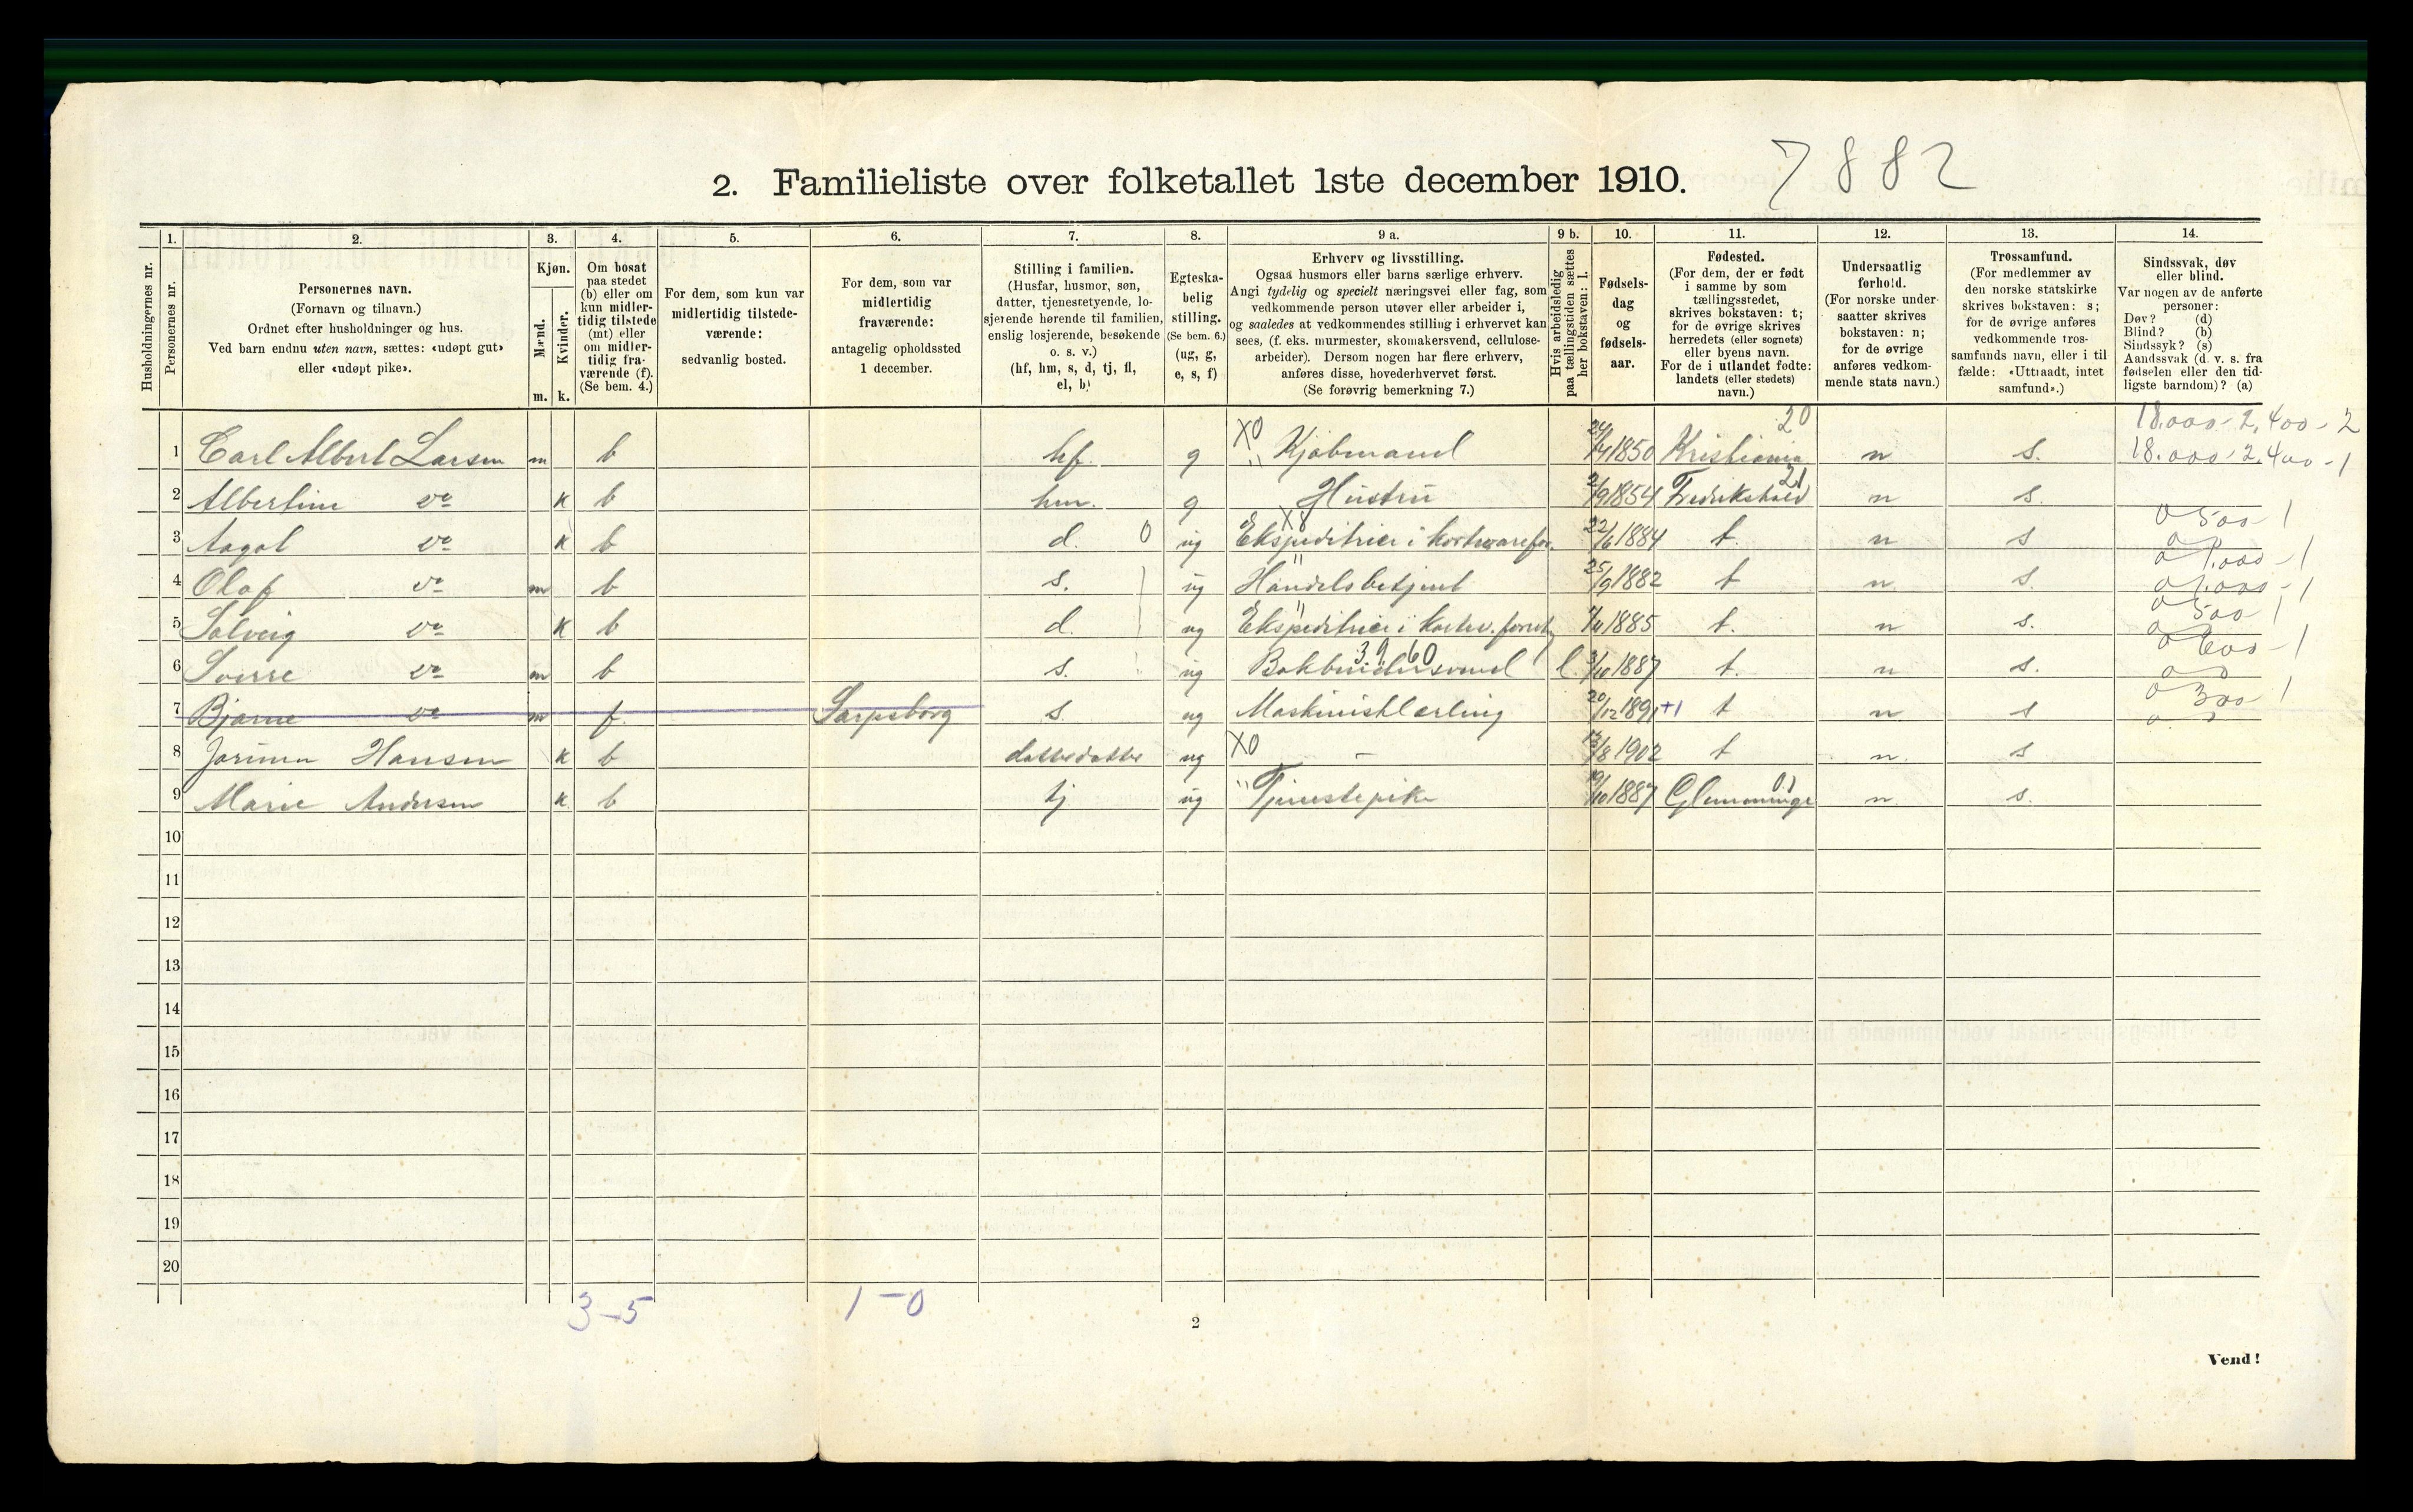 2. Familieliste over folketallet 1ste december 1910. 7882
Husholdningernes nr.
1. Personernes nr.
2. Personernes navn.
(Fornavn og tilnavn.)
Ordnet efter husholdninger og hus.
Ved barn endnu uten navn, sættes: «udøpt gut»
eller «udøpt pike».
3. Kjøn.
Mænd. m.
Kvinder. k.
4. Om bosat
paa stedet
(b) eller om
kun midler-
tidig tilstede
(mt) eller
om midler-
tidig fra-
værende (f).
(Se bem. 4.)
5. For dem, som kun var
midlertidig tilstede-
værende:
sedvanlig bosted.
6. For dem, som var
midlertidig
fraværende:
antagelig opholdssted
1 december.
7. Stilling i familien.
(Husfar, husmor, søn,
datter, tjenestetyende, lo-
sjerende hørende til familien,
enslig losjerende, besøkende
o. s. v.)
(hf, hm, s, d, tj, fl,
el, b)
8. Egteska-
belig
stilling.
(Se bem. 6.)
(ug, g,
e, s, f)
9 a. Erhverv og livsstilling.
Ogsaa husmors eller barns særlige erhverv.
Angi tydelig og specielt næringsvei eller fag, som
vedkommende person utøver eller arbeider i,
og saaledes at vedkommendes stilling i erhvervet kan
sees, (f. eks. murmester, skomakersvend, cellulose-
arbeider). Dersom nogen har flere erhverv,
anføres disse, hovederhvervet først.
(Se forøvrig bemerkning 7.)
9 b. Hvis arbeidsledig
paa tællingstiden sættes
her bokstaven: l.
10. Fødsels-
dag
og
fødsels-
aar.
11. Fødested.
(For dem, der er født
i samme by som
tællingsstedet,
skrives bokstaven: t;
for de øvrige skrives
herredets (eller sognets)
eller byens navn.
For de i utlandet fødte:
landets (eller stedets)
navn.)
12. Undersaatlig
forhold.
(For norske under-
saatter skrives
bokstaven: n;
for de øvrige
anføres vedkom-
mende stats navn.)
13. Trossamfund.
(For medlemmer av
den norske statskirke
skrives bokstaven: s;
for de øvrige anføres
vedkommende tros-
samfunds navn, eller i til
fælde: «Uttraadt, intet
samfund».)
14. Sindssvak, døv
eller blind.
Var nogen av de anførte
personer:
Døv? (d)
Blind? (b)
Sindssyk? (s)
Aandssvak (d. v. s. fra
fødselen eller den tid-
ligste barndom)? (a)
20 18.000-2.400-2
1 Carl Albert Larsen m b hf. g X0 Kjøbmand 1850 Kristiania n s. 18.000-2.400-1
2 Albertine do k b hm. g Hustru 2/9 1854 Fredrikshald 21 n s.
3 Aagot do k b d. 0 ug X8 Ekspeditrice i 22/6 1884 t. n s 0 500 1
4 Olaf do m b s. ug Handelsbetjent 25/9 1882 t n s. 0 1.000-1
0 1.000-1
5 Solveig do k b d. ug Ekspeditrice i 1885 t. n s. 0 500 1
6 Sverre do m b s. ug Bokbindersvend 39 60 l. 3/10 1887 t. n s. 0 600-1
7 Bjarne do m f. Sarpsborg s. ug Maskinistlærling 20/12 1891 +1 t n s 0 300 1
8 Jorunn Hansen k b datterdatter ug X0 – 13/8 1902 t n. s
9 Marie Andersen k. b tj ug Tjenestepike 19/10 1887 Glemminge 01 n s.
10
11
12
13
14
15
16
17
18
19
20
3-5 1-0
2
Vend!